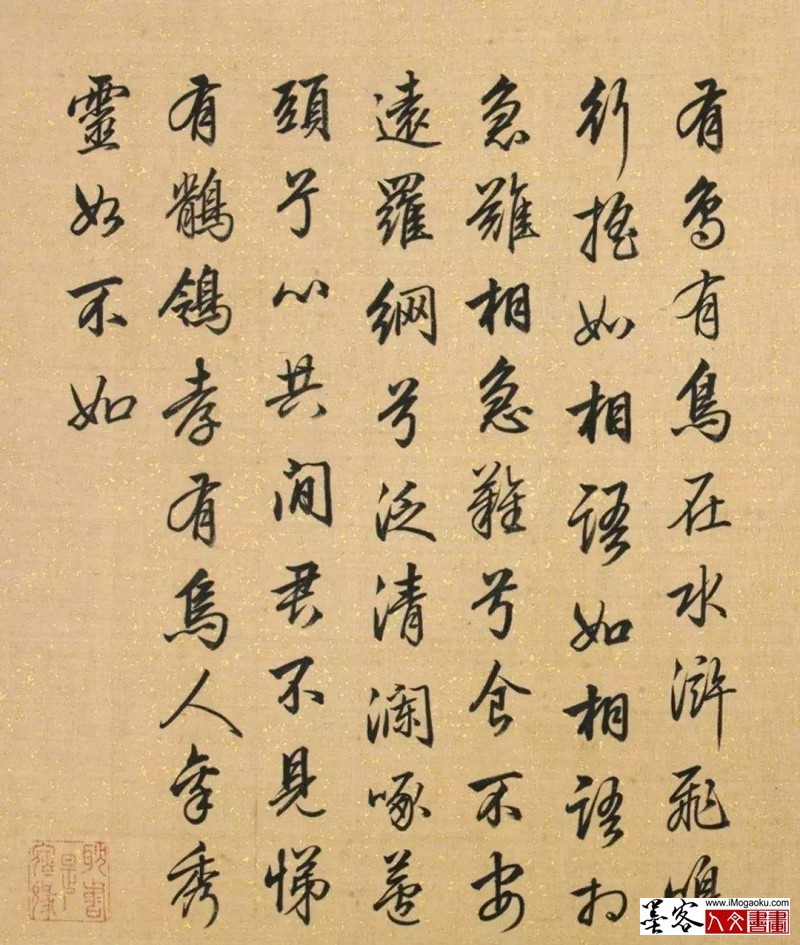 有鳥有鳥在水滸飛鳴
行搖如相語如相語相
急難相急難兮食不安
遠羅網兮泛清瀾啄
頭兮心共閒君不見悌
有鶺鴒孝有烏人秀
靈如不如
耽書是宿緣
墨客
www.iMogaoku.com
人文書畫